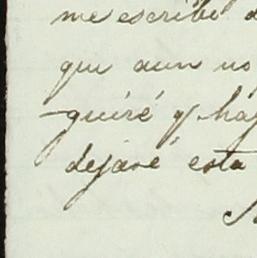 me escribe
que aun no
-guiré y
dejaré esta